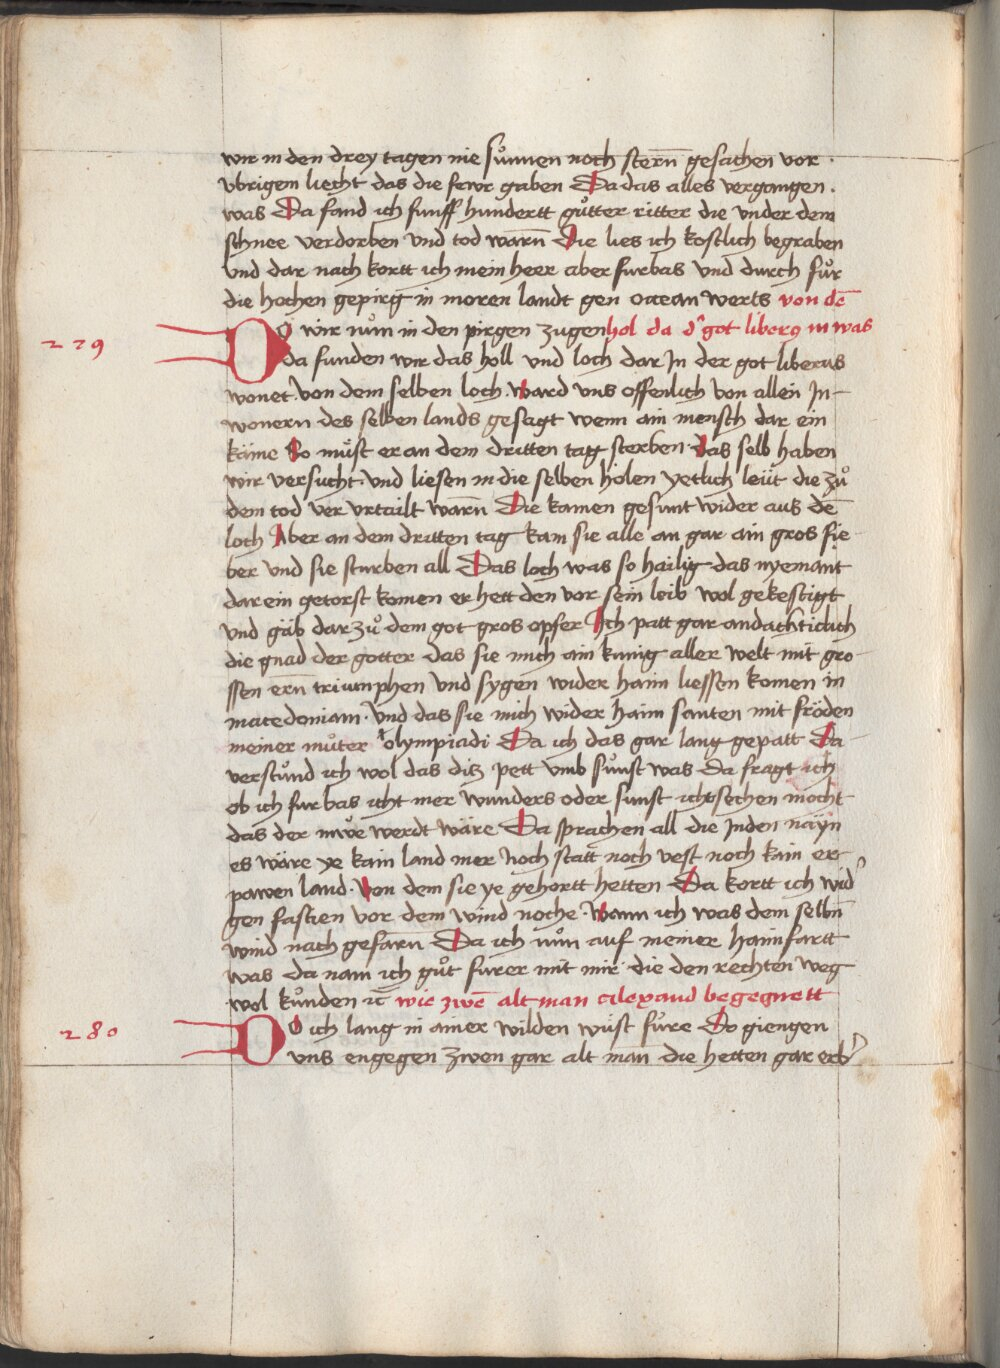 wir in den drey tagen nie sůnnen noch stern̄ gesachen vor
vbrigem liecht das die fewr gaben Da das alles vergangen.
was Da fand ich funff hundertt gůtter ritter die vnder dem
schnee verdorben vnd tod warn̄ Die lies ich kostlich begraben
vnd dar nach kortt ich mein heer aber furbas vnd durch fůr
die hochen gepirg in moren landt gen occean werts von dē
hol da d' got liber9 in was
279
DO wir nům in den pirgen zugen
da funden wir das holl vnd loch dar In der got liberus
wonet. von dem selben loch. ward vns offenlich von allen In-
wonern des selben lands gesagt wenn ain mensch dar ein
käme So müst er an dem dritten tag sterben. das selb haben
wir versucht. vnd liesen in die selben hölen yetlich leüt die zů
dem tod ver vrtailt warn̄ Die kamen gesunt wider aus dē
loch Aber an dem dritten tag kam sie alle an gar ain gros fie
ber vnd sie sturben all Das loch was so hailig das nyemant
dar ein getorst komen er hett den vor sein leib wol gekestigt
vnd gäb dar zů dem got gros opfer Ich patt gar andachticlich
die gnad der gotter das sie mich ain kunig aller welt mit gro-
ssen ern̄ triumphen vnd sygen wider haim liessen komen in
macedoniam. vnd das sie mich wider haim santen mit fröden
meiner můter olympiadi Da ich das gar lang gepatt Da
verstůnd ich wol das dis pett vmb sůnst was Da fragt ich
ob ich furbas icht mer wunders oder sunst icht sechen mocht
das der mve werdt wäre Da sprachen all die Inden nayn
es wäre ye kain land mer noch statt noch vest noch kain er
pawen land. Von dem sie ye gehortt hetten Da kortt ich wid'
gen fascien vor dem wind noche. Wann ich was dem selbn̄
wind nach gefarn̄ Da ich nůn auf meiner haimfartt
was da nam ich gůt furer mit mir die den rechten weg
wol kůnden ꝛc wie zwē alt man alexand begegnett
280
DO ich lang in ainer wilden wüst fůre Do giengen
vns engegen zwen gar alt man die hetten gar erb'